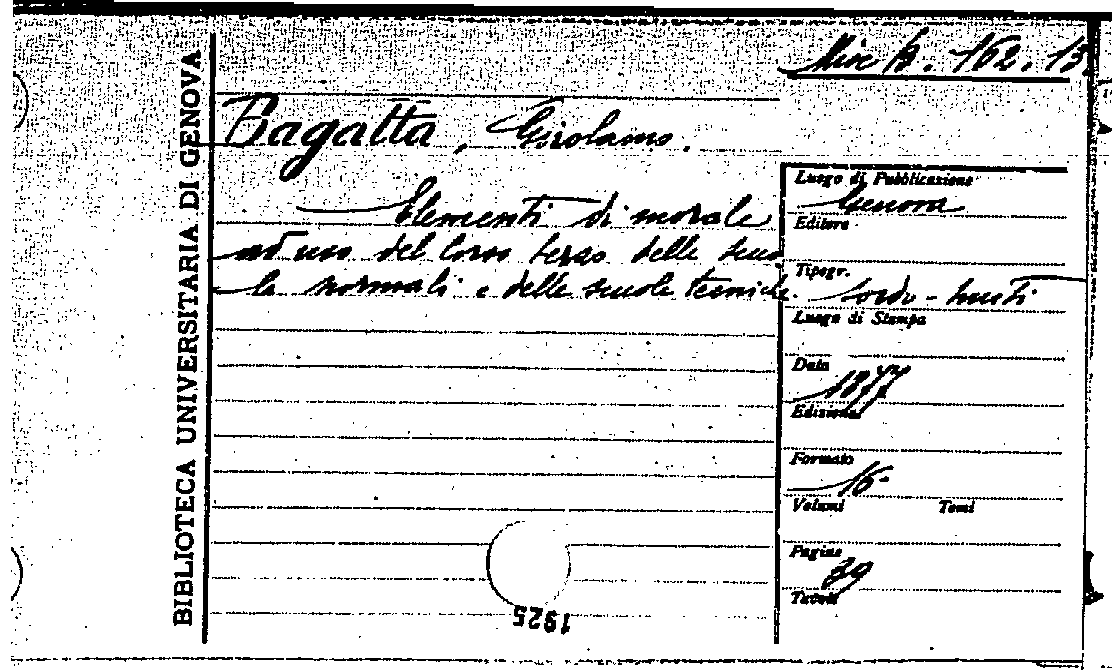 BIBLIOTECA UNIVERSITARIA DI GENOVA
Misc B. 162. 13
Bagatta, Girolamo.
Elementi di morale
ad uso del Corso terzo delle scuo
le normali e delle scuole tecniche.
Luogo di Pubblicazione
Genova
Editore
Tipogr. Sordo-muti
Luogo di Stampa
Data
1877
Edizione
Formato
16°
Volumi Tomi
Pagine
39
Tavole
1925